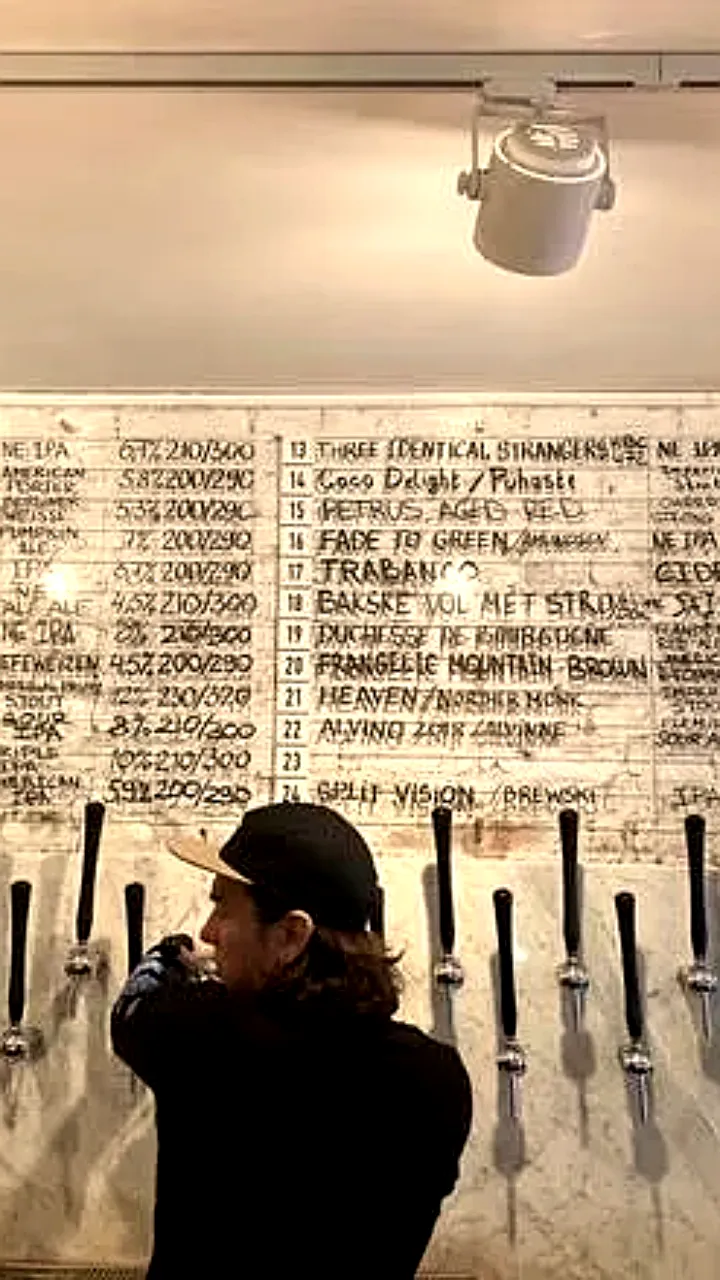 NE IPA 6,7% 210/300 13 THREE IDENTICAL STRANGERS NE IPA
AMERICAN PORTER 5,8% 200/290 14 Coco Delight / Puhaste
5,3% 200/290 15 PETRUS AGED RED
PUMPKIN ALE 7% 200/290 16 FADE TO GREEN / AMUNDSEN NE IPA
IPA 6,7% 200/290 17 TRABANCO CIDER
NE PALE ALE 4,5% 210/300 18 BAKSKE VOL MET STRO
NE IPA 8% 210/300 19 DUCHESSE DE BOURGOGNE
HEFEWEIZEN 4,5% 200/290 20 FRANGELIC MOUNTAIN BROWN
STOUT 12% 230/320 21 HEAVEN / NORTHER MONK
SOUR IPA 8% 210/300 22 ALVINO 2018 / ALVINNE
TRIPLE IPA 10% 210/300 23
AMERICAN IPA 5,9% 200/290 24 SPLIT VISION / BREWSKI IPA